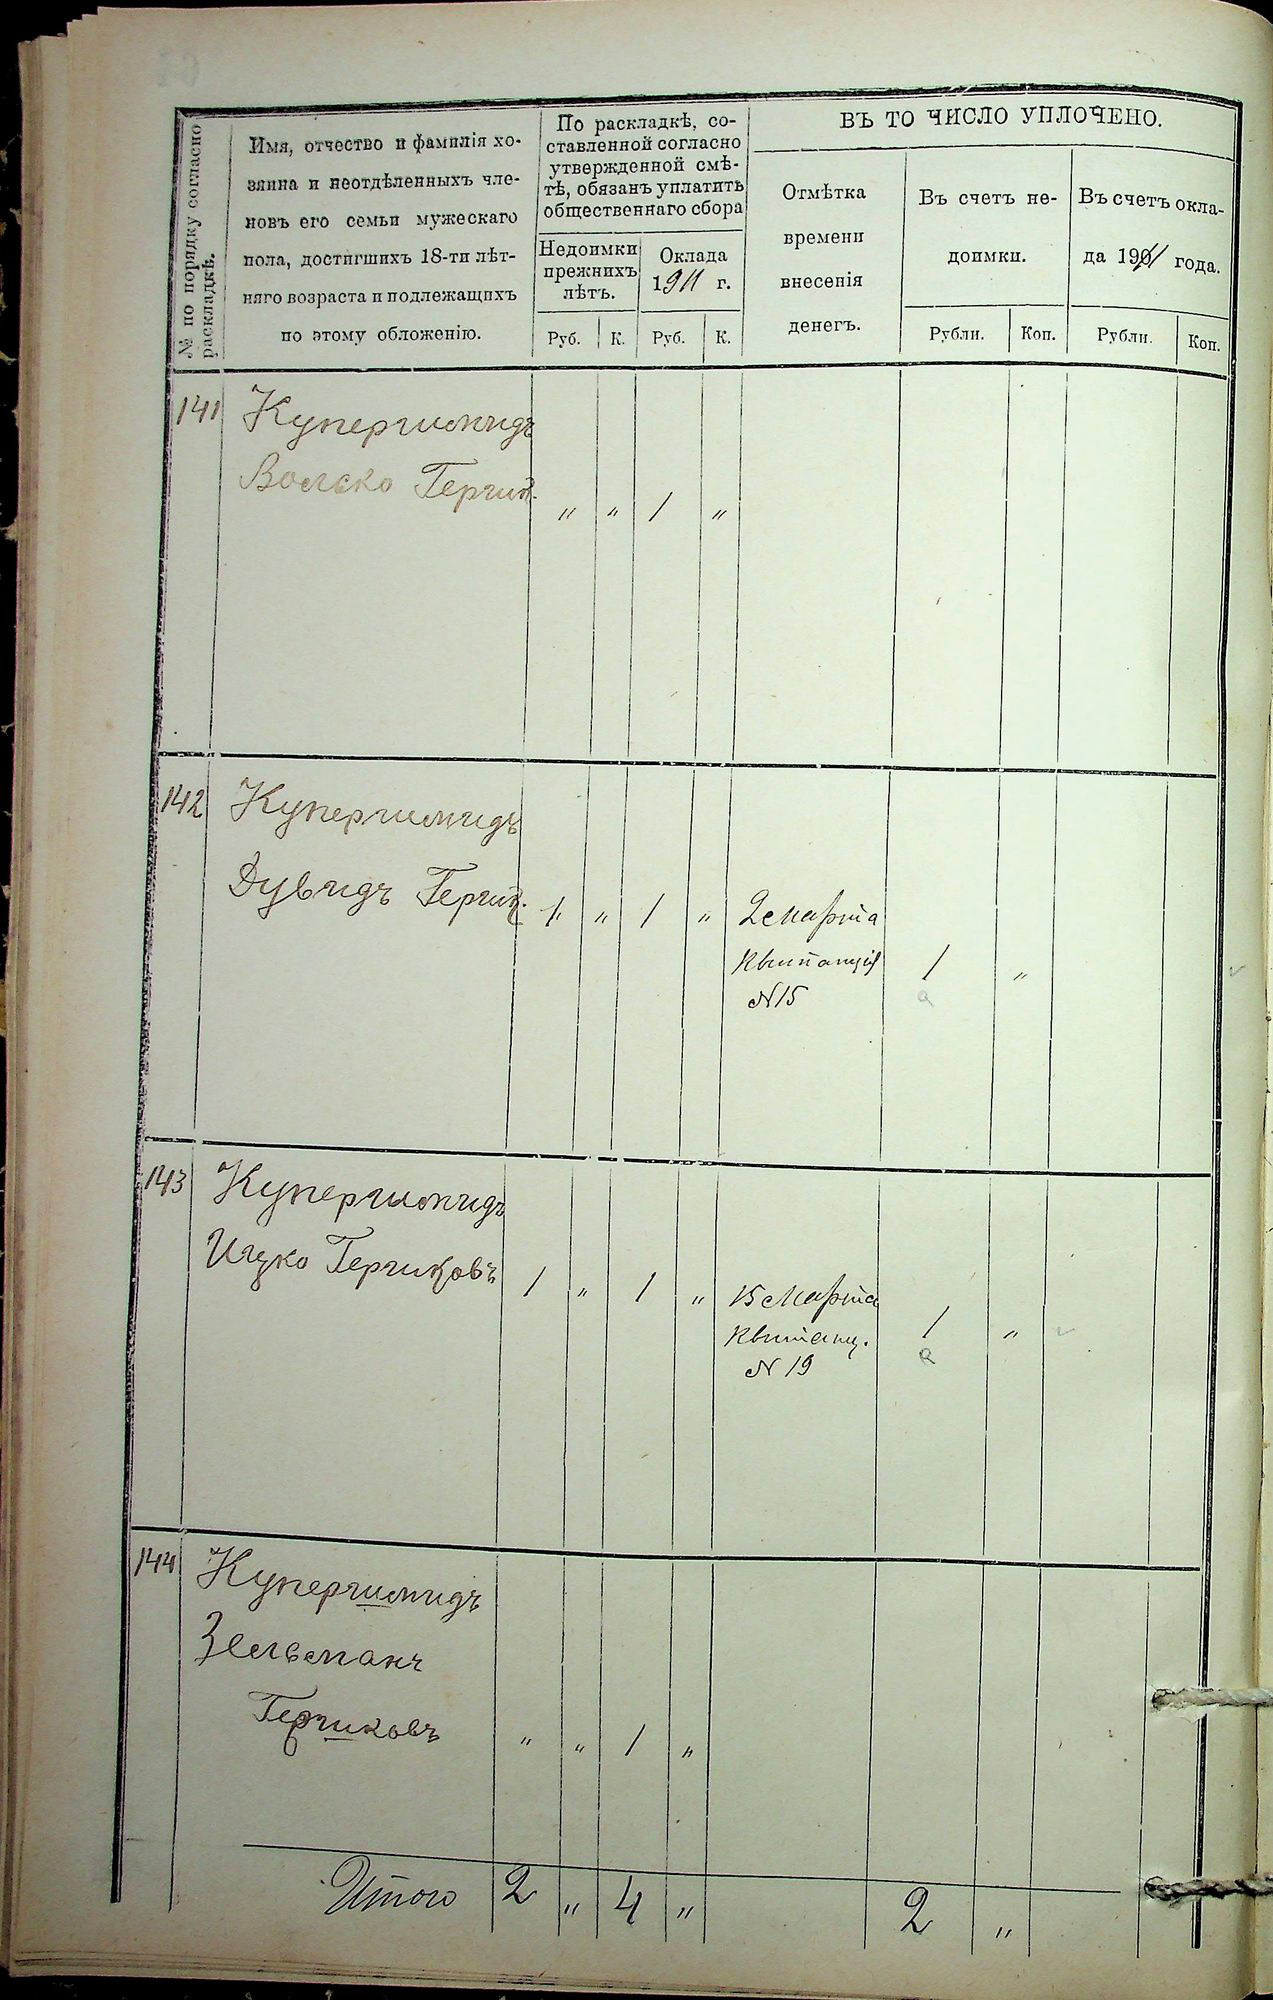 № по порядку согласно
раскладкѣ.
Имя, отчество и фамилія хо-
зяина и неотдѣленныхъ чле-
новъ его семьи мужескаго
пола, достигшихъ 18-ти лѣт-
няго возраста и подлежащихъ
по этому обложенію.
По раскладкѣ, со-
ставленной согласно
утвержденной смѣ-
тѣ, обязанъ уплатить
общественнаго сбора
Недоимки
прежнихъ
лѣтъ.
Оклада
1911 г.
Руб. К. Руб. К.
ВЪ ТО ЧИСЛО УПЛОЧЕНО.
Отмѣтка
времени
внесенія
денегъ.
Въ счетъ не-
доимки.
Въ счетъ окла-
да 1911 года.
Рубли. Коп. Рубли. Коп.
141 Купершмидъ
Волько Гершк.
„ „ 1 „
142 Купершмидъ
Дувидъ Гершк. 1 „ 1 „ 2 Марта
Квитанція 1 „
№ 15
143 Купершмидъ
Ицко Гершковъ 1 „ 1 „ 15 Марта
Квитанц. 1 „
№ 19
144 Купершмидъ
Зельманъ
Гершковъ „ „ 1 „
Итого 2 „ 4 „ 2 „